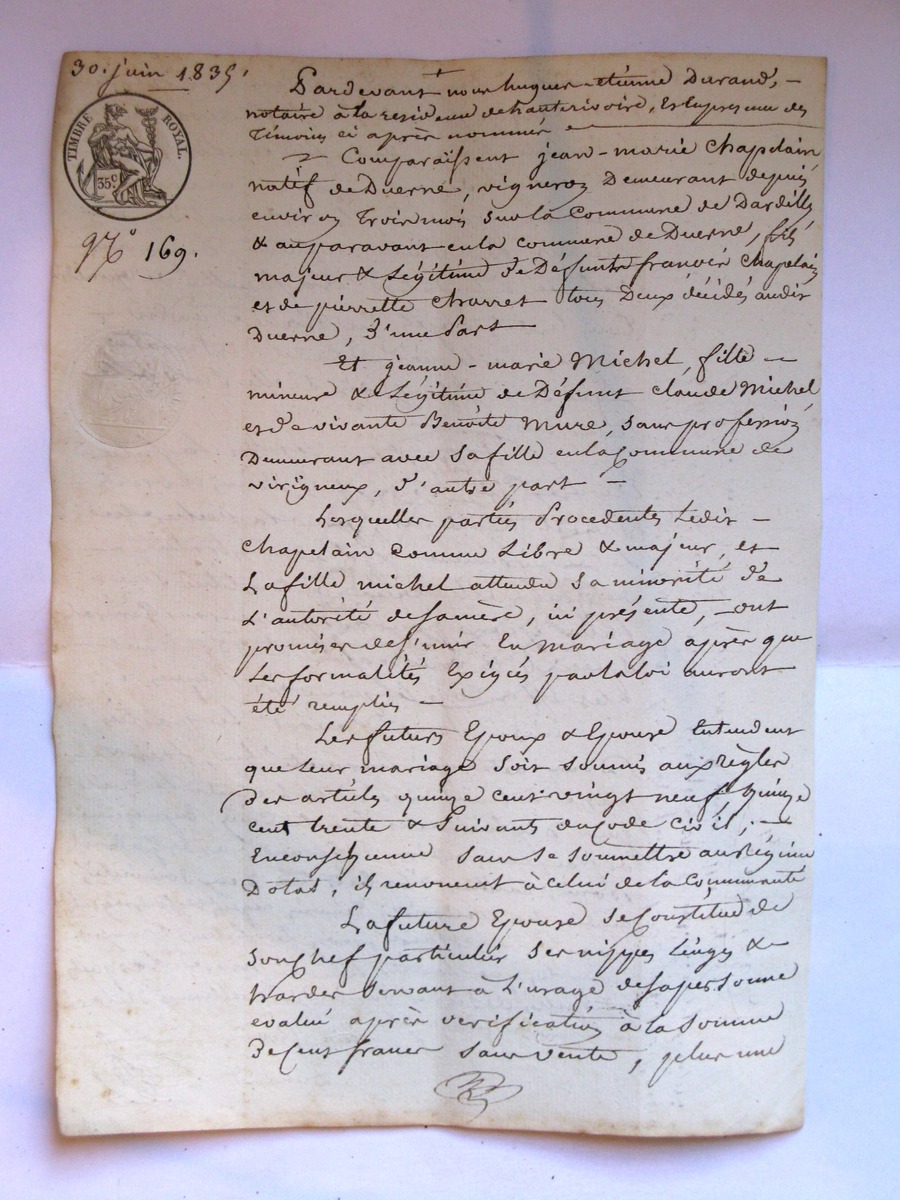 30. juin 1835.
TIMBRE ROYAL.
35 c
N.° 169.
Pardevant nous hugues-étienne Durand, -
notaire à la residence de hauterivoire, Et En presence des
Témoins ci après nommés
Comparaissent jean-marie Chapelain
natif de Duerne, vigneron Demeurant depuis
environ Trois mois sur la Commune de Dardilly
& auparavant en la commune de Duerne, fils
majeur & Légitime de Défunts françois Chapelain
et de pierrette Charret tous Deux décédés audit
Duerne, D'une Part
Et jeanne-marie Michel, fille -
mineure & Légitime de Défunt Claude Michel
et de vivante Benoîte Mure, sans profession
Demeurant avec sa fille en la Commune de
virigneux, d'autre part -
Lesquelles parties Procedentes Ledit -
Chapelain Comme Libre & majeur, et
La fille michel attendu sa minorité de
L'autorité de sa mère, ici présente, - ont
promis de s'unir En mariage après que
Les formalités Exigées par la loi auront
été remplies -
Les futurs Epoux & Epouse Entendent
que Leur mariage soit soumis aux Règles
Des articles quinze cent vingt neuf, quinze
cent trente & suivants du Code civil; -
En conséquence sans se soumettre au Régime
Dotal, ils renoncent à celui de la Communauté
La future Epouse se Constitue de
son Chef particulier ses nippes Linges &
hardes servant à L'usage de sa personne
evalué après verification à la somme
de Cent francs sans vente, plus une